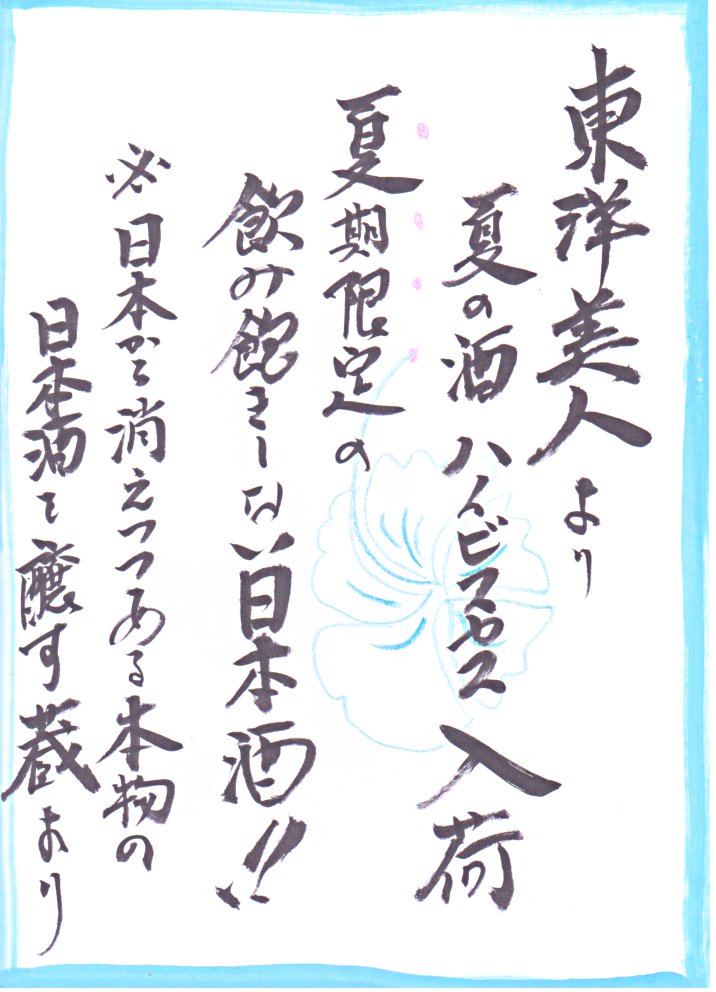 東洋美人より
夏の酒 ハイビスカス 入荷
夏期限定の
飲み飽きしない日本酒!!
必 日本から消えつつある本物の
日本酒を醸す蔵より